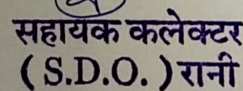 सहायक कलेक्टर
( S.D.O. ) रानी